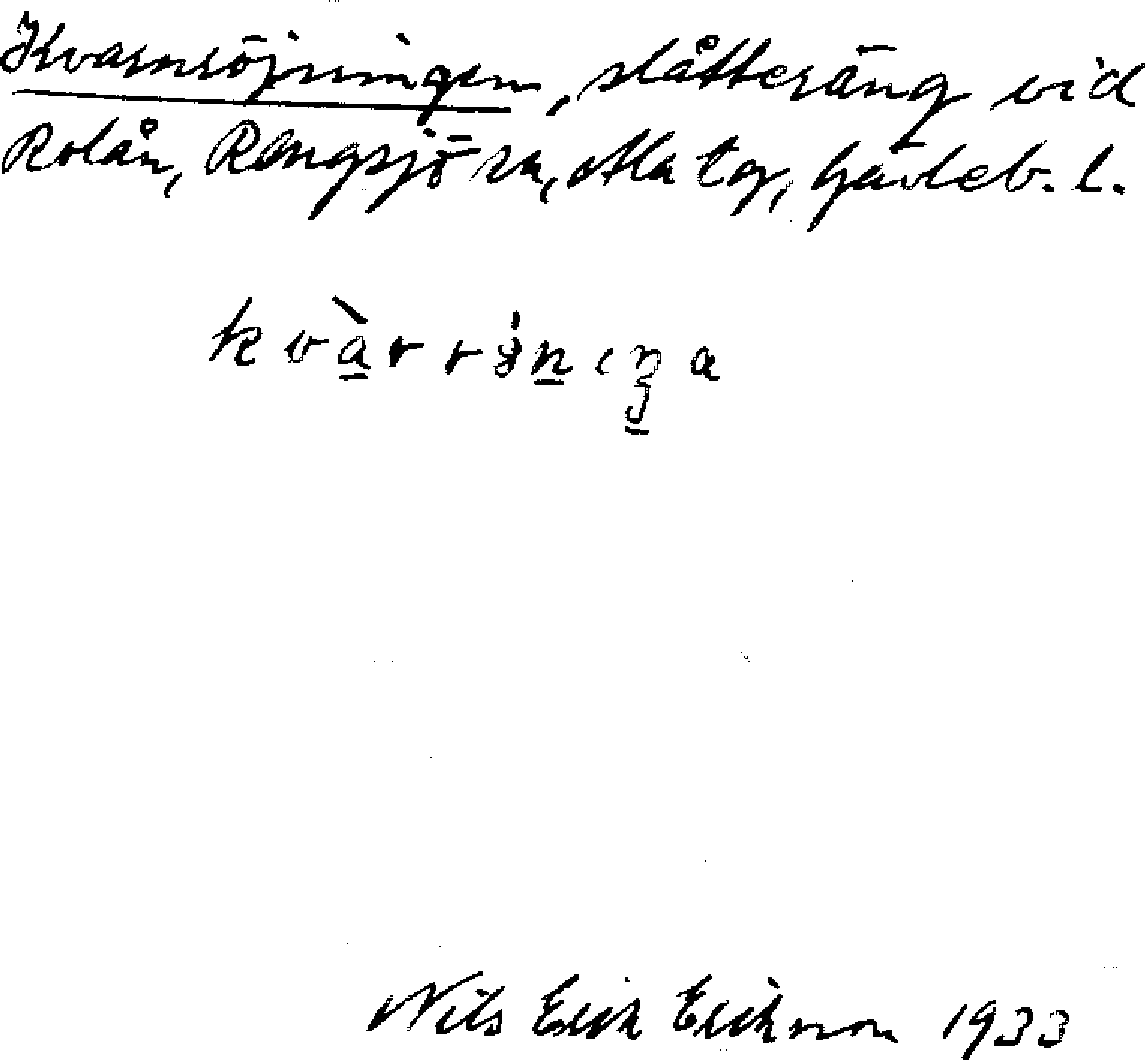 Kvarnröjningen, slåtteräng vid
Rolån, Rengsjö sn, Ala tg, Gävleb. l.
Nils Erik Erikson 1933